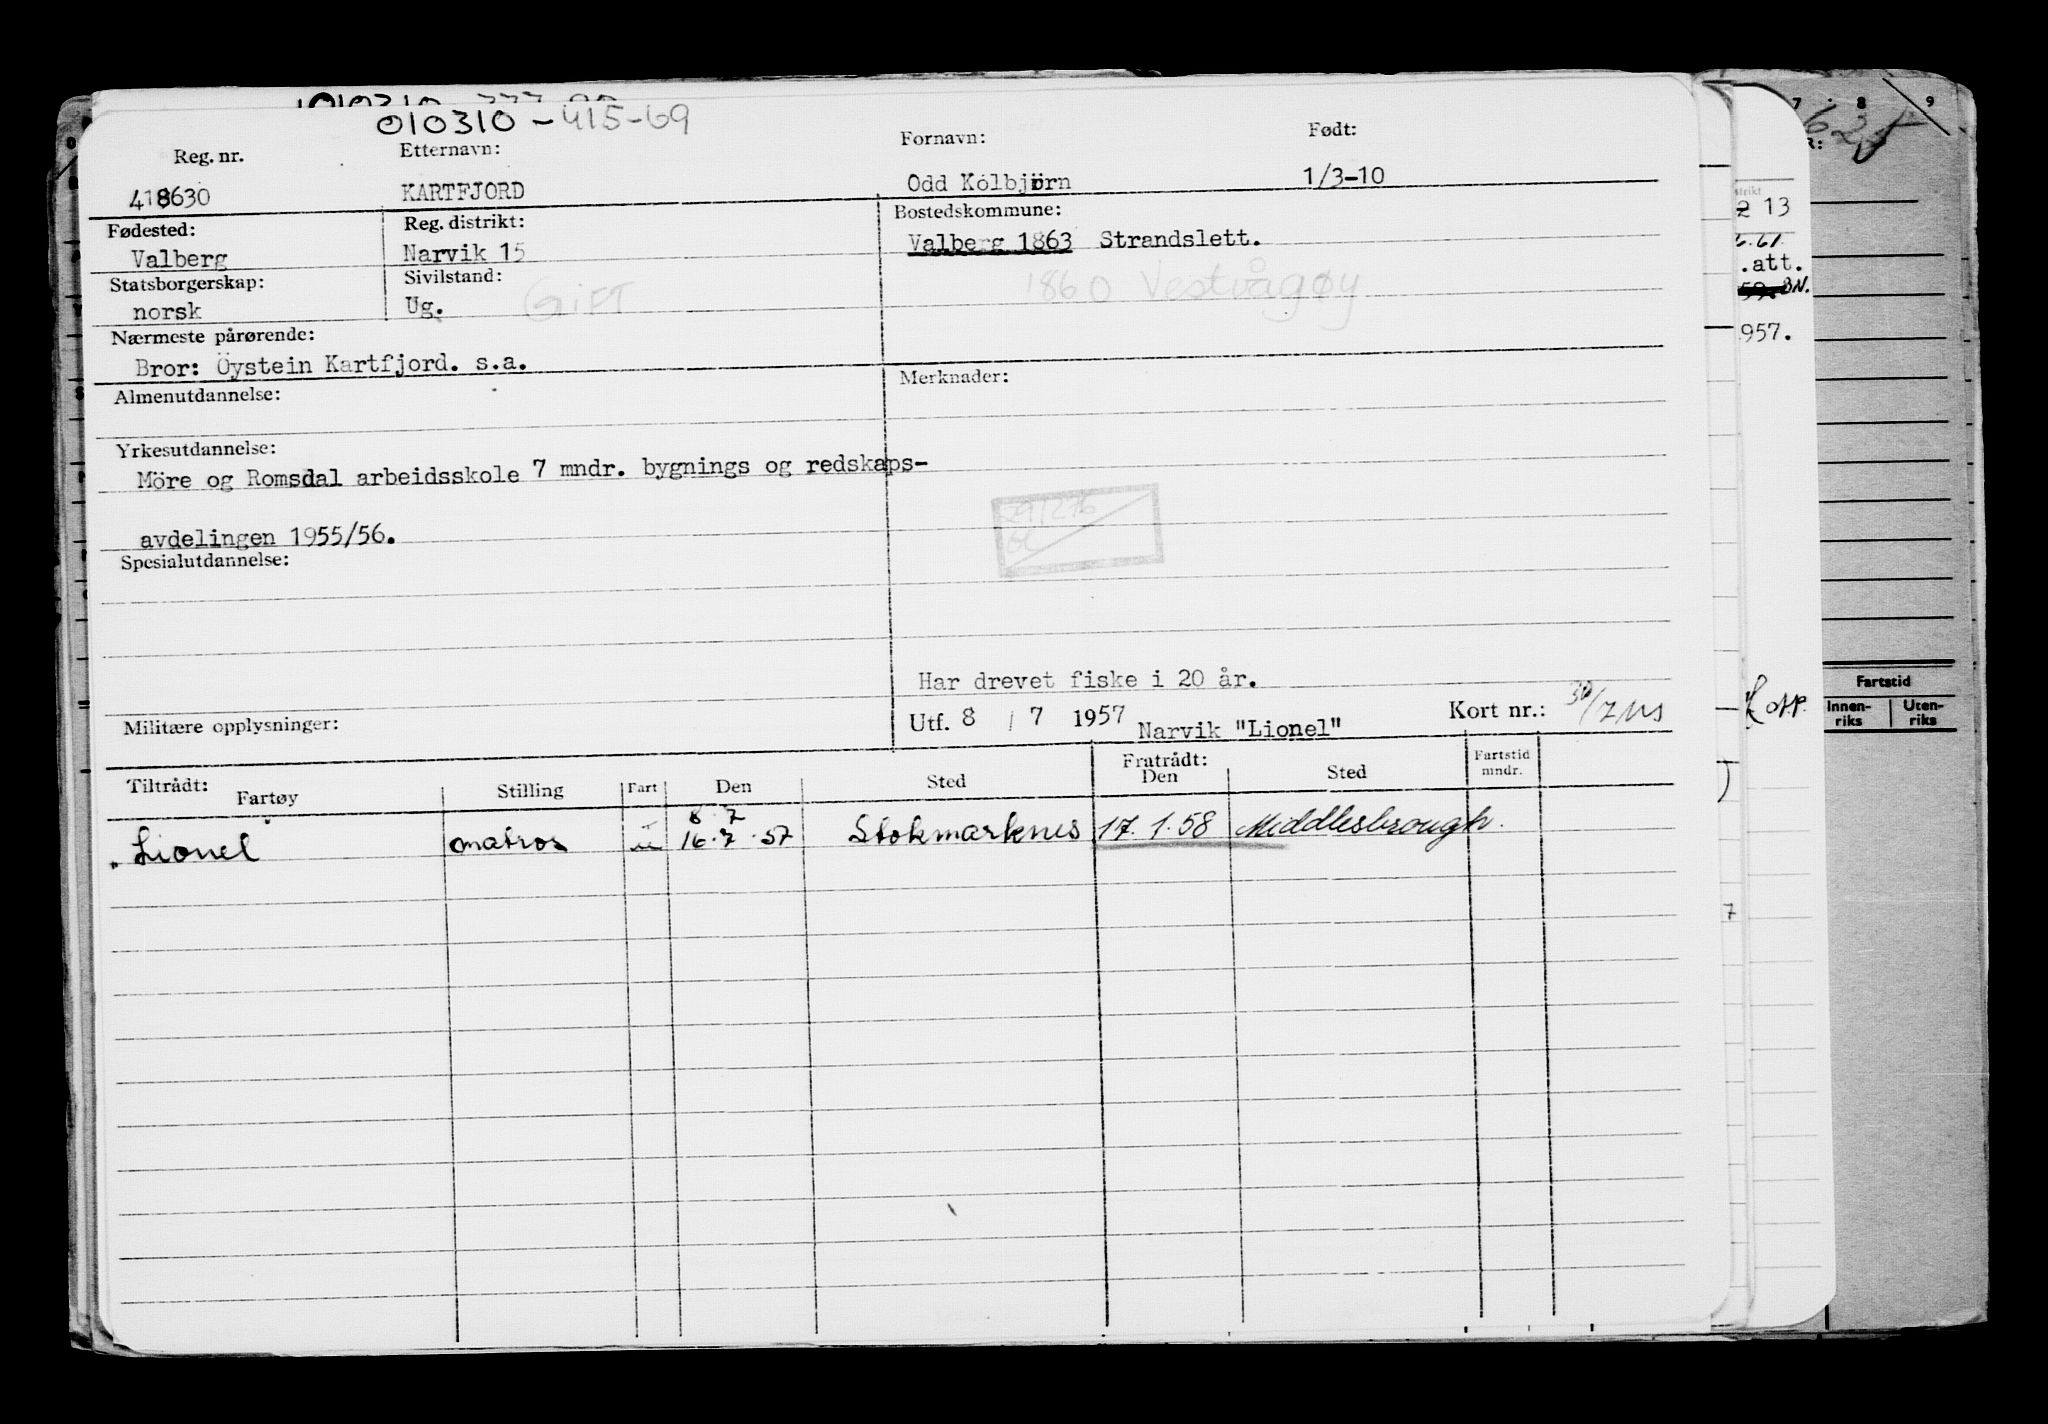 010310-415-69
Reg. nr. Etternavn: Fornavn: Født:
418630 KARTFJORD Odd Kolbjörn 1/3-10
Fødested: Reg. distrikt: Bostedskommune:
Valberg Narvik 15 Valberg 1863 Strandslett.
Statsborgerskap: Sivilstand: 1860 Vestvågøy
norsk Ug. GIFT
Nærmeste pårørende:
Bror: Öystein Kartfjord. s.a.
Almenutdannelse: Merknader:
Yrkesutdannelse:
Möre og Romsdal arbeidsskole 7 mndr. bygnings og redskaps-
avdelingen 1955/56.
Spesialutdannelse:
Har drevet fiske i 20 år.
Militære opplysninger: Utf. 8 / 7 1957 Narvik "Lionel" Kort nr.:
Tiltrådt: Fratrådt:
Fartøy Stilling Fart Den Sted Den Sted Fartstid mndr.
8.7
Lionel matros u 16.7.57 Stokmarknes 17.1.58 Middlesbrough.
7 8 9
R:
strikt
2 13
.att.
59. BN.
957.
Fartstid
Innen-riks Uten-riks
7